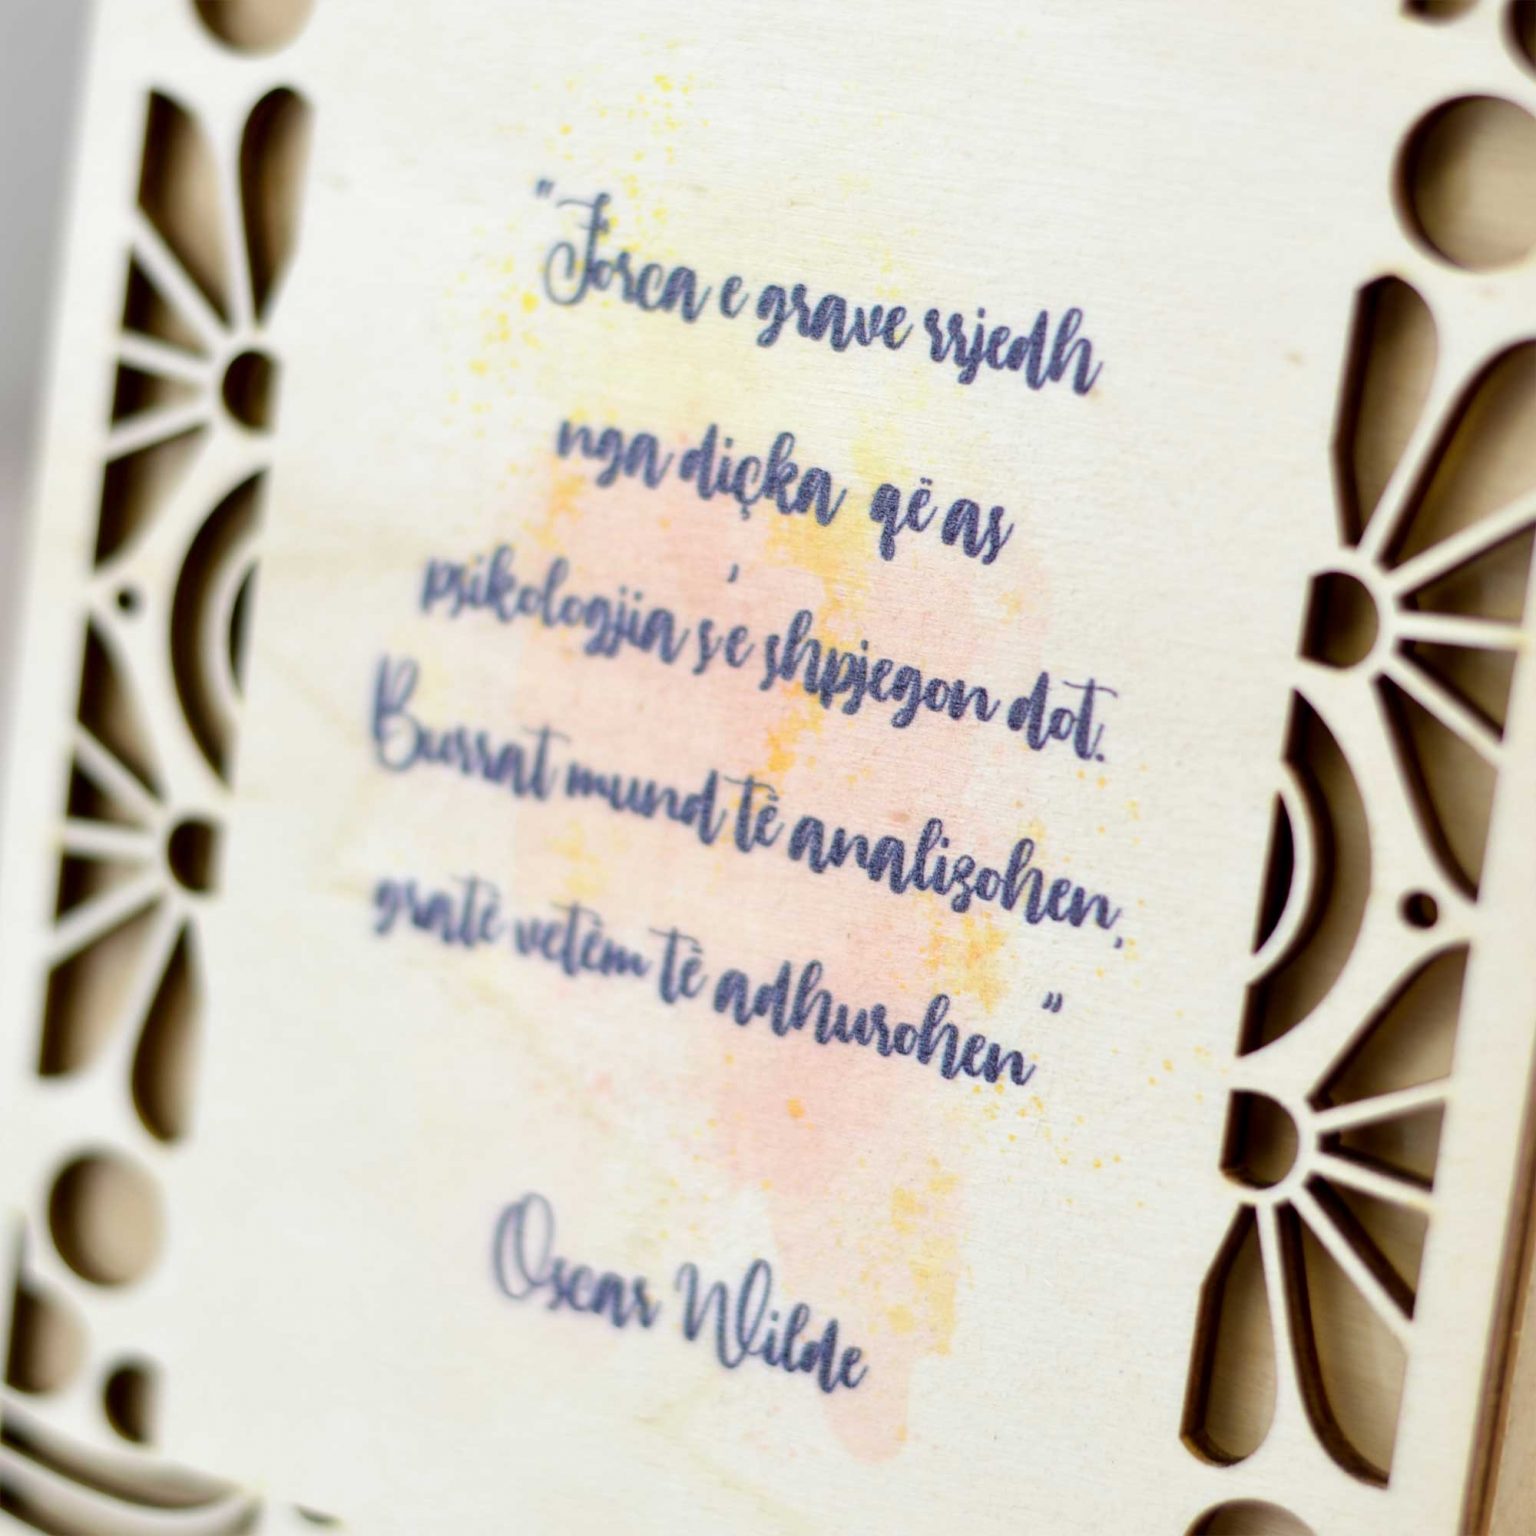 "Forca e grave rrjedh
nga diçka që as
psikologjia s'e shpjegon dot.
Burrat mund të analizohen,
gratë vetëm të adhurohen"
Oscar Wilde